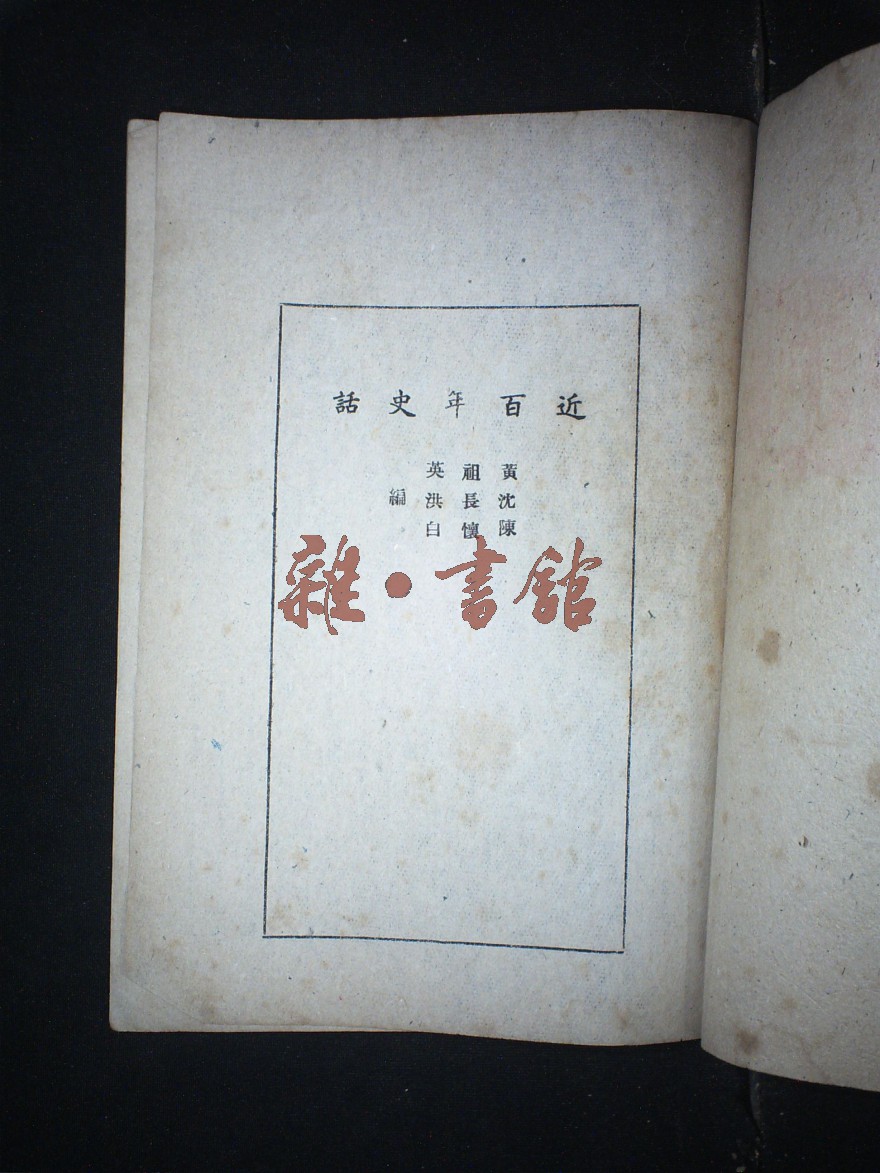 近百年史話
黃祖英
沈長洪
陳懷白
編
雜·書館